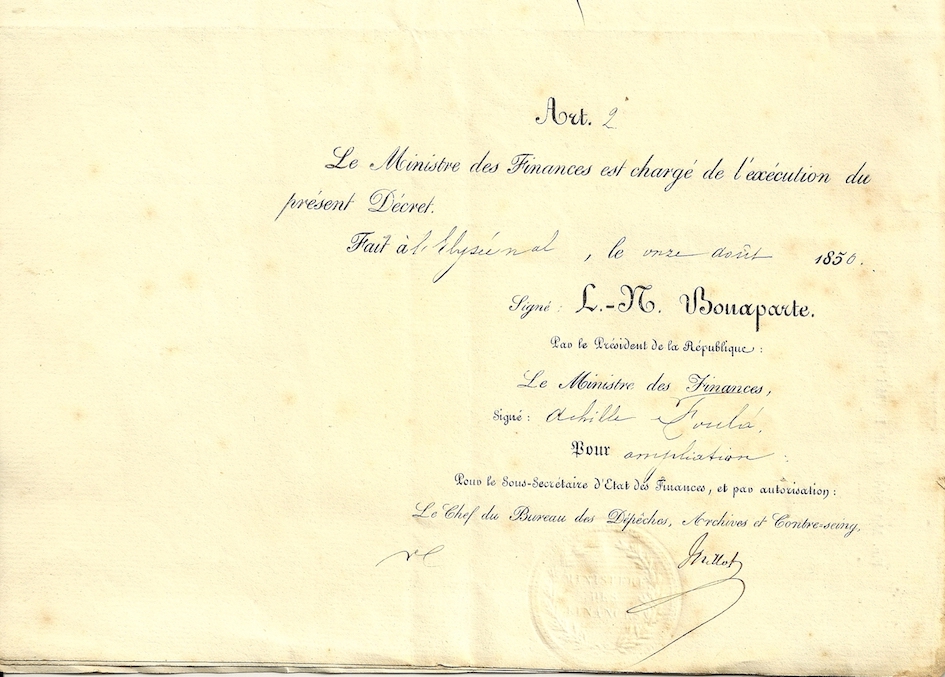 Art. 2
Le Ministre des Finances est chargé de l'exécution du
présent Décret.
Fait à l'Elysée nal, le onze août 1850.
Signé : L.-N. Bonaparte.
Par le Président de la République :
Le Ministre des Finances,
Signé : Achille Fould.
Pour ampliation :
Pour le Sous-Secrétaire d'Etat des Finances, et par autorisation :
Le Chef du Bureau des Dépêches, Archives et Contre-seing,
MINISTERE
DES
FINANCES